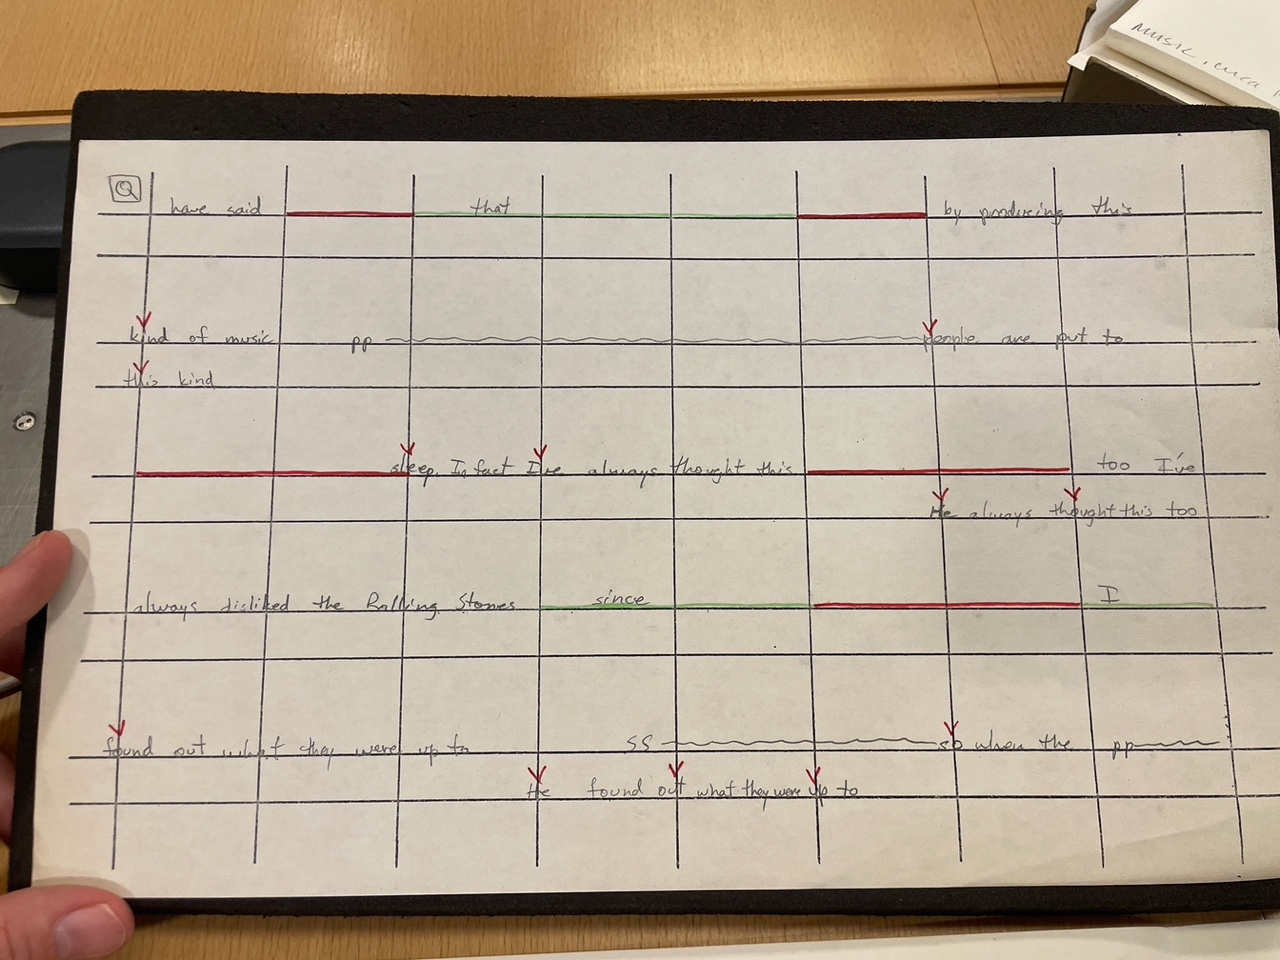 MUSIC, circa
Q
have said that by producing this
kind of music pp people are put to
this kind
sleep. In fact I've always thought this too I've
He always thought this too
always disliked the Rolling Stones since I
found out what they were up to ss so when the pp
He found out what they were up to